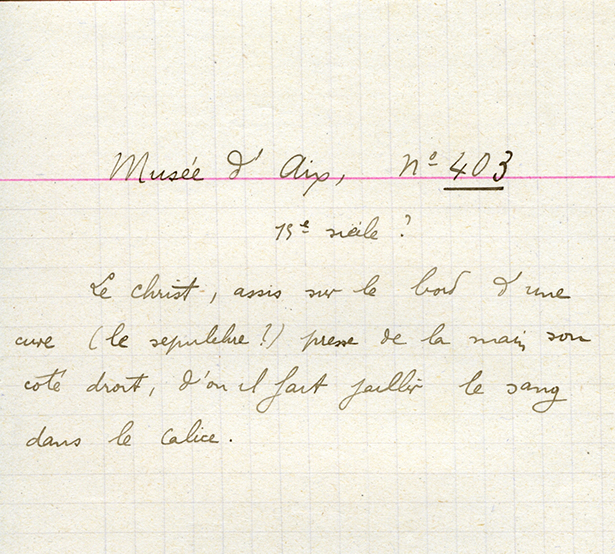 Musée d'Aix, nº 403
15e siècle ?
Le christ, assis sur le bord d'une
cuve (le sepulchre ?) presse de la main son
coté droit, d'où il fait jaillir le sang
dans le calice.